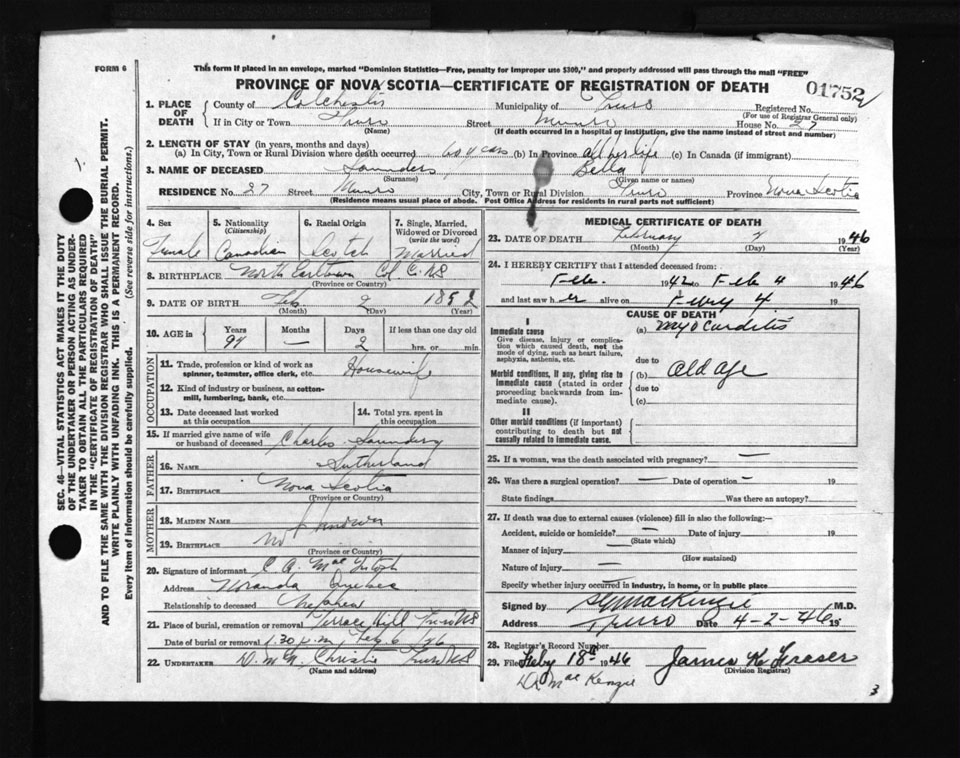 FORM 6
This form if placed in an envelope, marked "Dominion Statistics—Free, penalty for improper use $300," and properly addressed will pass through the mail "FREE"
PROVINCE OF NOVA SCOTIA—CERTIFICATE OF REGISTRATION OF DEATH
01752
1. PLACE OF DEATH
County of Colchester Municipality of Truro Registered No.
(For use of Registrar General only)
If in City or Town Truro Street Munro House No. 27
(Name) (If death occurred in a hospital or institution, give the name instead of street and number)
2. LENGTH OF STAY (in years, months and days)
(a) In City, Town or Rural Division where death occurred 60 years (b) In Province all her life (c) In Canada (if immigrant)
3. NAME OF DECEASED Saunders Bella
(Surname) (Given name or names)
RESIDENCE No. 27 Street Munro City, Town or Rural Division Truro Province Nova Scotia
(Residence means usual place of abode. Post Office Address for residents in rural parts not sufficient)
4. Sex Female
5. Nationality (Citizenship) Canadian
6. Racial Origin Scotch
7. Single, Married, Widowed or Divorced (write the word) Married
8. BIRTHPLACE North Earltown Col. C. NS
(Province or Country)
9. DATE OF BIRTH Feb 2 18
(Month) (Day) (Year)
10. AGE in Years Months — Days 2 If less than one day old hrs. or min.
OCCUPATION
11. Trade, profession or kind of work as spinner, teamster, office clerk, etc. Housewife
12. Kind of industry or business, as cotton-mill, lumbering, bank, etc.
13. Date deceased last worked at this occupation
14. Total yrs. spent in this occupation
15. If married give name of wife or husband of deceased Charles Saunders
FATHER
16. NAME Sutherland
17. BIRTHPLACE Nova Scotia
(Province or Country)
MOTHER
18. MAIDEN NAME
19. BIRTHPLACE
(Province or Country)
20. Signature of informant C. A. MacIntosh
Address Noranda Quebec
Relationship to deceased Nephew
21. Place of burial, cremation or removal Terrace Hill Truro NS
Date of burial or removal 1.30 p.m. Feb 6 /46
22. UNDERTAKER Christie Truro NS
(Name and address)
MEDICAL CERTIFICATE OF DEATH
23. DATE OF DEATH February 1946
(Month) (Day) (Year)
24. I HEREBY CERTIFY that I attended deceased from:
Feb. 1942 to Feb 4 1946
and last saw her alive on Feby 4 19
CAUSE OF DEATH
I
Immediate cause (a) Myocarditis
Give disease, injury or complication which caused death, not the mode of dying, such as heart failure, asphyxia, asthenia, etc.
due to
Morbid conditions, if any, giving rise to immediate cause (stated in order proceeding backwards from immediate cause). (b) Old Age
due to
(c)
II
Other morbid conditions (if important) contributing to death but not causally related to immediate cause.
25. If a woman, was the death associated with pregnancy? —
26. Was there a surgical operation? — Date of operation — 19
State findings Was there an autopsy?
27. If death was due to external causes (violence) fill in also the following:—
Accident, suicide or homicide? — Date of injury 19
(State which)
Manner of injury
(How sustained)
Nature of injury —
Specify whether injury occurred in industry, in home, or in public place
Signed by MacKenzie M.D.
Address Truro Date 4-2-46 19
28. Registrar's Record Number
29. Filed Feby 18th 1946 James K. Fraser
(Division Registrar)
MacKenzie
3
1.
SEC. 46—VITAL STATISTICS ACT MAKES IT THE DUTY OF THE UNDERTAKER OR PERSON ACTING AS UNDERTAKER TO OBTAIN ALL THE PARTICULARS REQUIRED IN THE "CERTIFICATE OF REGISTRATION OF DEATH"
AND TO FILE THE SAME WITH THE DIVISION REGISTRAR WHO SHALL ISSUE THE BURIAL PERMIT.
WRITE PLAINLY WITH UNFADING INK. THIS IS A PERMANENT RECORD.
Every item of information should be carefully supplied. (See reverse side for instructions.)